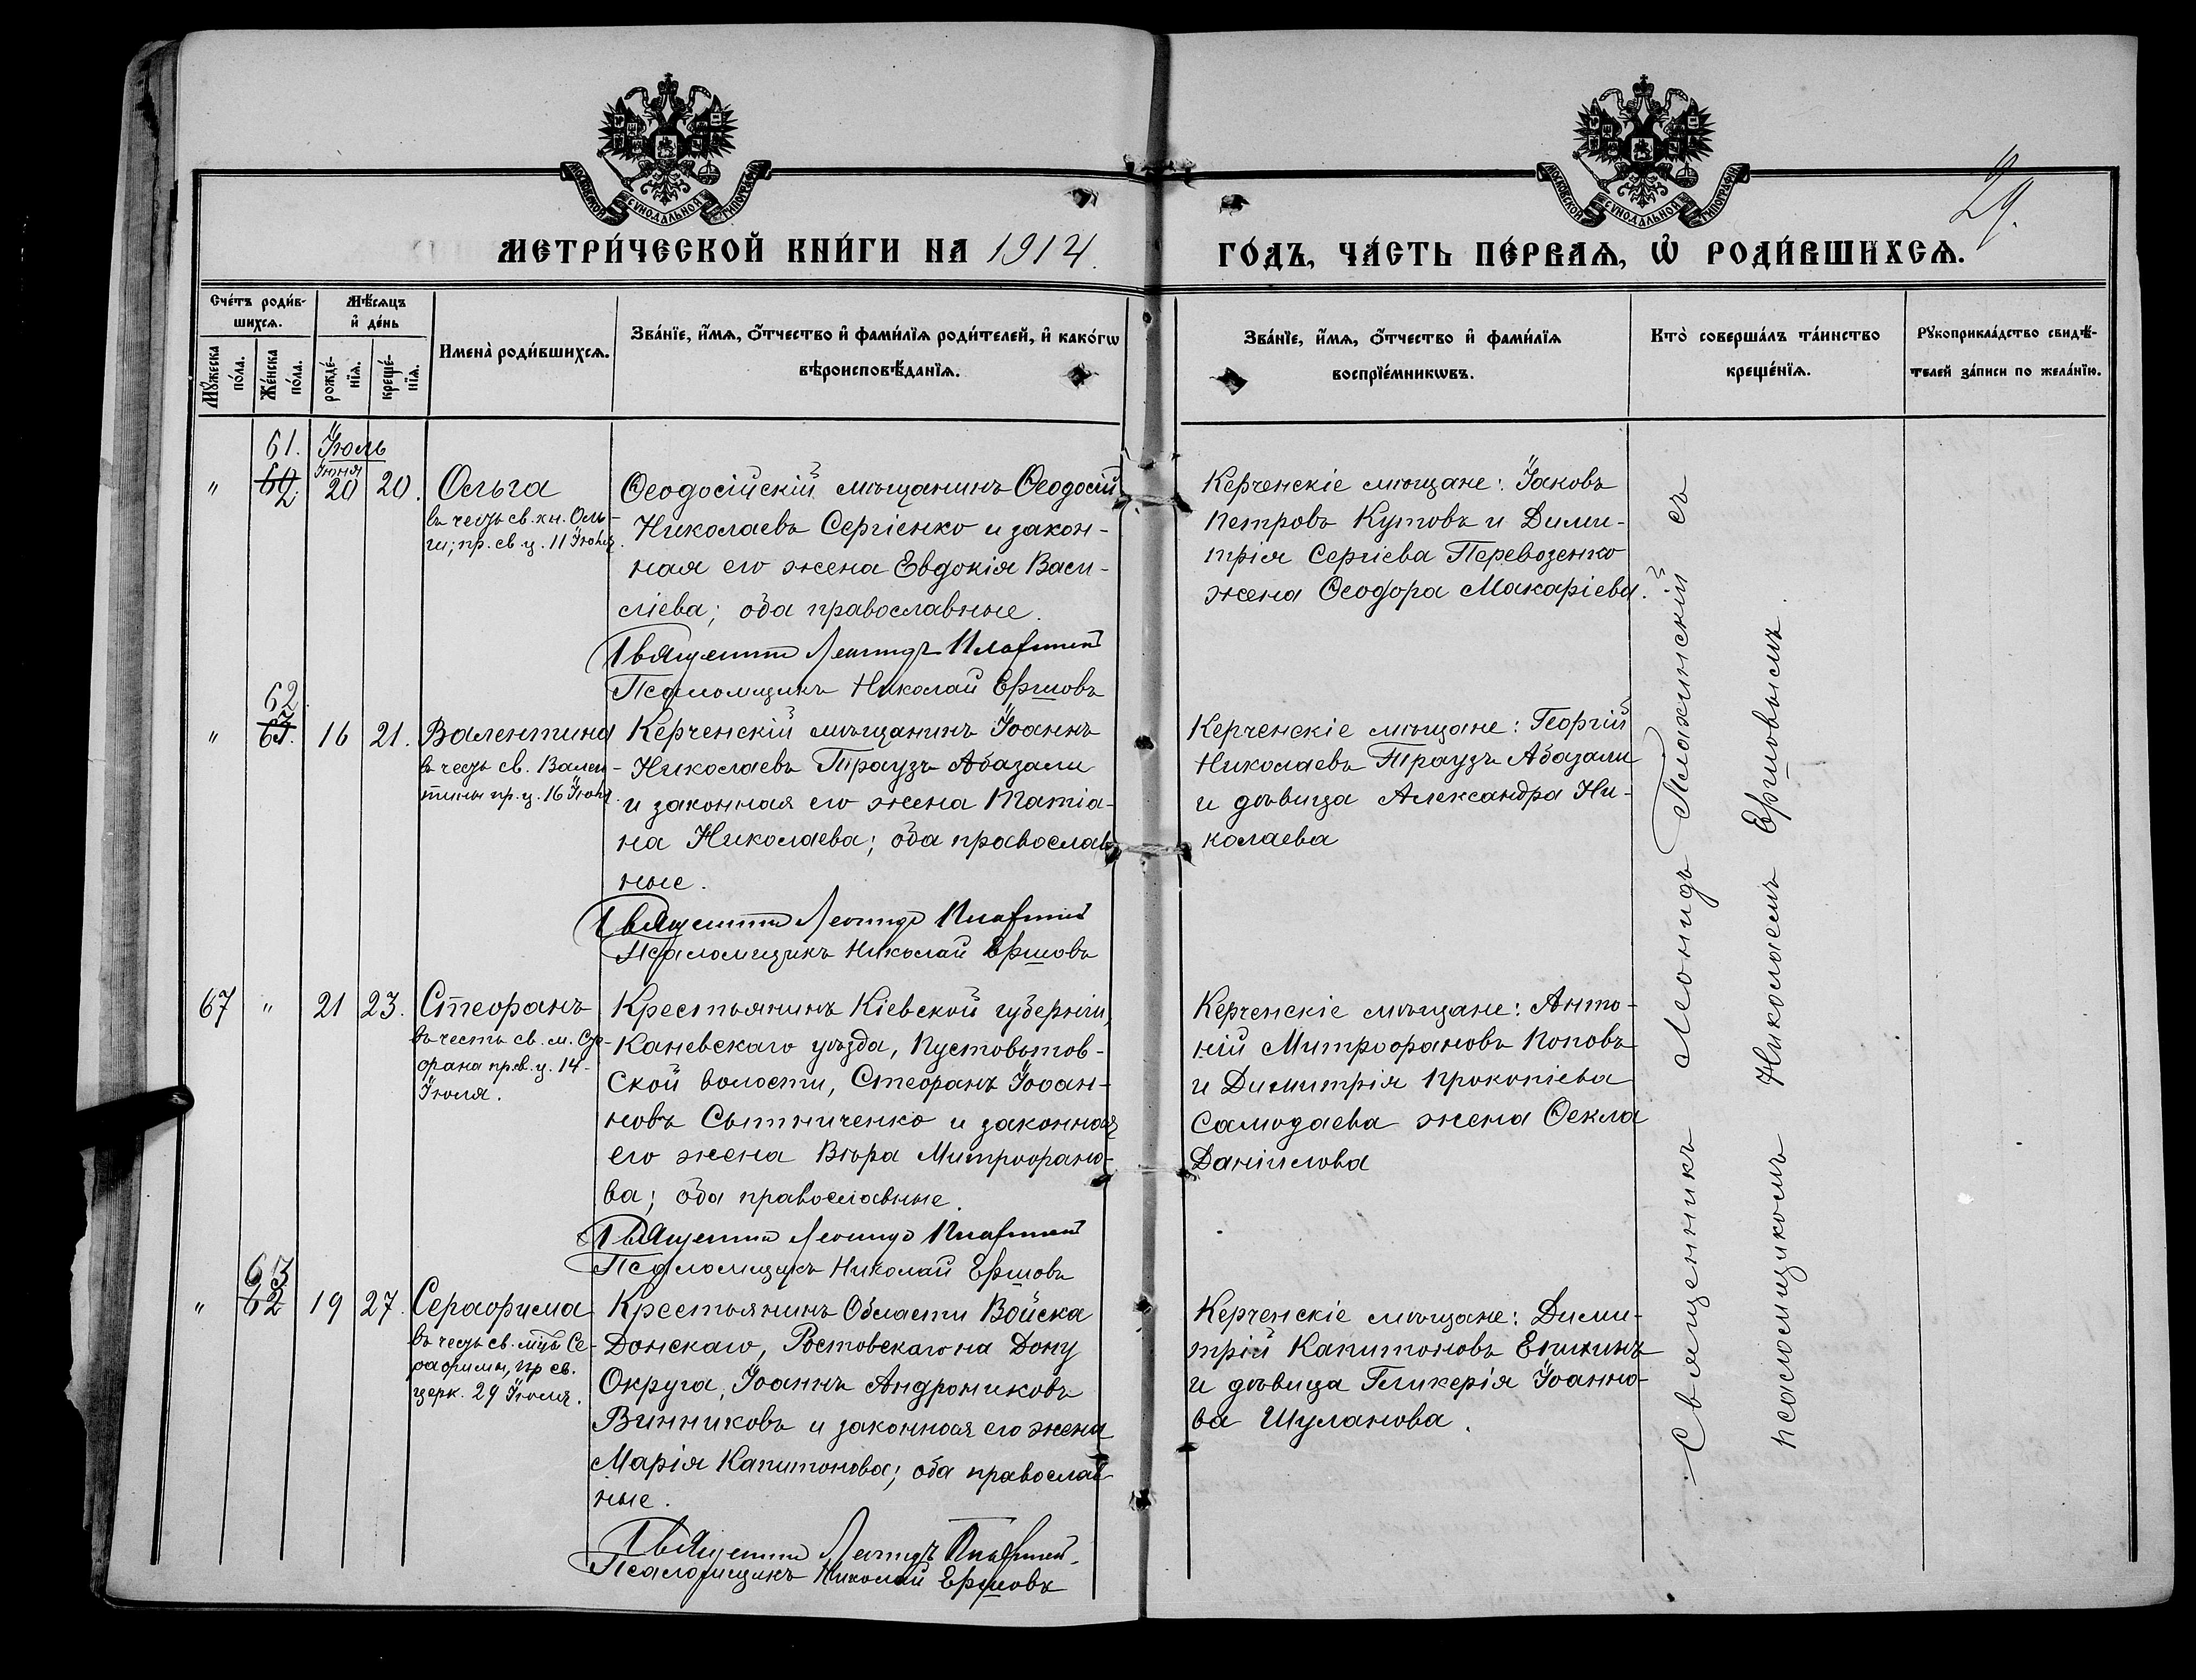 МОСКОВСКОЙ СѴНОДАЛЬНОЙ ТИПОГРАФІИ
МОСКОВСКОЙ СѴНОДАЛЬНОЙ ТИПОГРАФІИ
29.
МЕТРИ́ЧЕСКОЙ КНИ́ГИ НА 1914.
ГО́ДЪ, ЧА́СТЬ ПЕ́РВАѦ, Ѽ РОДИ́ВШИХСѦ.
Сче́тъ роди́в-
шихсѧ.
Мꙋ́жеска по́ла.
Же́нска по́ла.
Мѣ́сѧцъ
и҆ де́нь
рожде́-нїѧ.
креще́-нїѧ.
Имена̀ роди́вшихсѧ.
Зва́нїе, и҆́мѧ, ѻ҆́тчество и҆ фами́лїѧ роди́телей, и҆ како́гѡ
вѣроисповѣ́данїѧ.
Зва́нїе, и҆́мѧ, ѻ҆́тчество и҆ фами́лїѧ
воспрїе́мникѡвъ.
Кто̀ соверша́лъ та́инство
креще́нїѧ.
Рꙋкоприкла́дство свидѣ́-
телей за́писи по жела́нїю.
61. Іюль
" 60 2 Іюня 20 20. Ольга
въ честь св. кн. Оль-
ги; пр. св. ц. 11 Іюля.
Ѳеодосійскій мѣщанинъ Ѳеодосій
Николаевъ Сергіенко и закон-
ная его жена Евдокія Васи-
ліева; оба православные.
Священникъ Леонидъ Плахинскій
Псаломщикъ Николай Ершовъ
Керченскіе мѣщане: Іаковъ
Петровъ Кутовъ и Дими-
трія Сергіева Перевозенко
жена Ѳеодора Макаріева.
62
" 61. 16 21. Валентина
въ честь св. Вален-
тины пр. ц. 16 Іюля.
Керченскій мѣщанинъ Іоаннъ
Николаевъ Траузъ Абазали
и законная его жена Татіа-
на Николаева; оба православ-
ные.
Священникъ Леонидъ Плахинскій
Псаломщикъ Николай Ершовъ
Керченскіе мѣщане: Георгій
Николаевъ Траузъ Абазали
и дѣвица Александра Ни-
колаева
67 " 21 23. Стефанъ
въ честь св. м. Сте-
фана пр. св. ц. 14-
Іюля.
Крестьянинъ Кіевской губерніи,
Каневскаго уѣзда, Пустовотов-
ской волости, Стефанъ Іоан-
новъ Сытниченко и законная
его жена Вѣра Митрофано-
ва; оба православные.
Священникъ Леонидъ Плахинскій
Псаломщикъ Николай Ершовъ
Керченскіе мѣщане: Анто-
ній Митрофановъ Поповъ
и Димитрія Прокопіева
Самодаева жена Ѳекла
Даніилова
63
" 62 19 27. Серафима
въ честь св. мцы Се-
рафимы, пр. св.
церк. 29 Іюля.
Крестьянинъ Области Войска
Донскаго, Ростовскаго на Дону
Округа, Іоаннъ Андрониковъ
Винниковъ и законная его жена
Марія Капитонова; оба православ-
ные.
Священникъ Леонидъ Плахинскій
Псаломщикъ Николай Ершовъ
Керченскіе мѣщане: Дими-
трій Капитоновъ Епихинъ
и дѣвица Гликерія Іоанно-
ва Шуланова.
Священникъ Леонидъ Плахинскій съ
псаломщикомъ Николаемъ Ершовымъ.